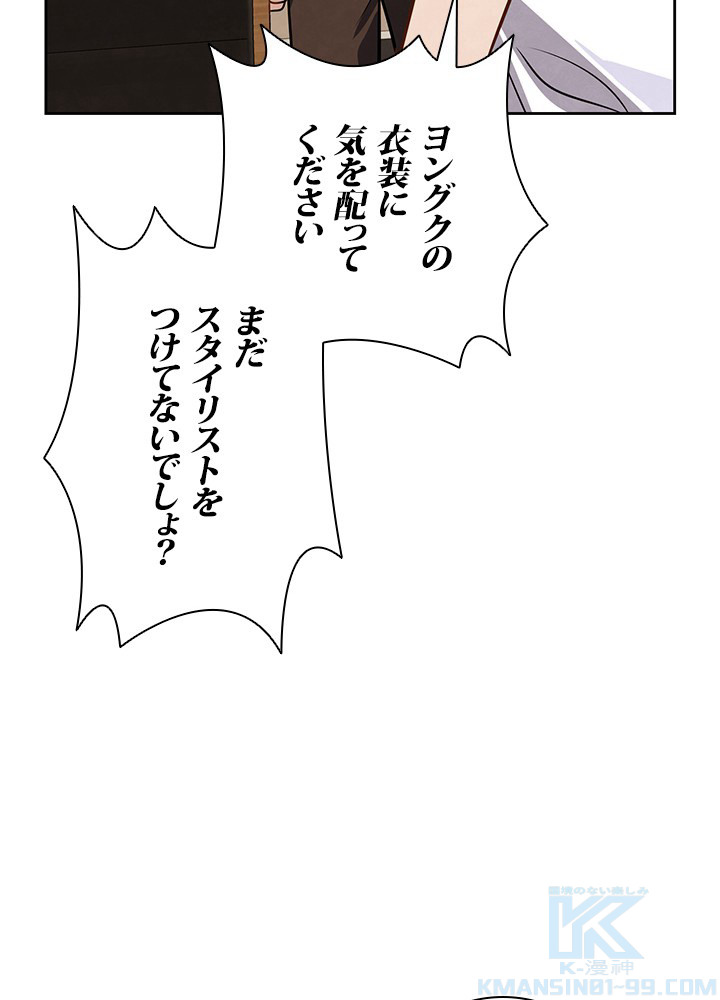 ヨングクの
衣装に
気を配って
ください
まだ
スタイリストを
つけてないでしょ?
国境のない楽しみ
K-漫神
KMANSIN01-99.COM